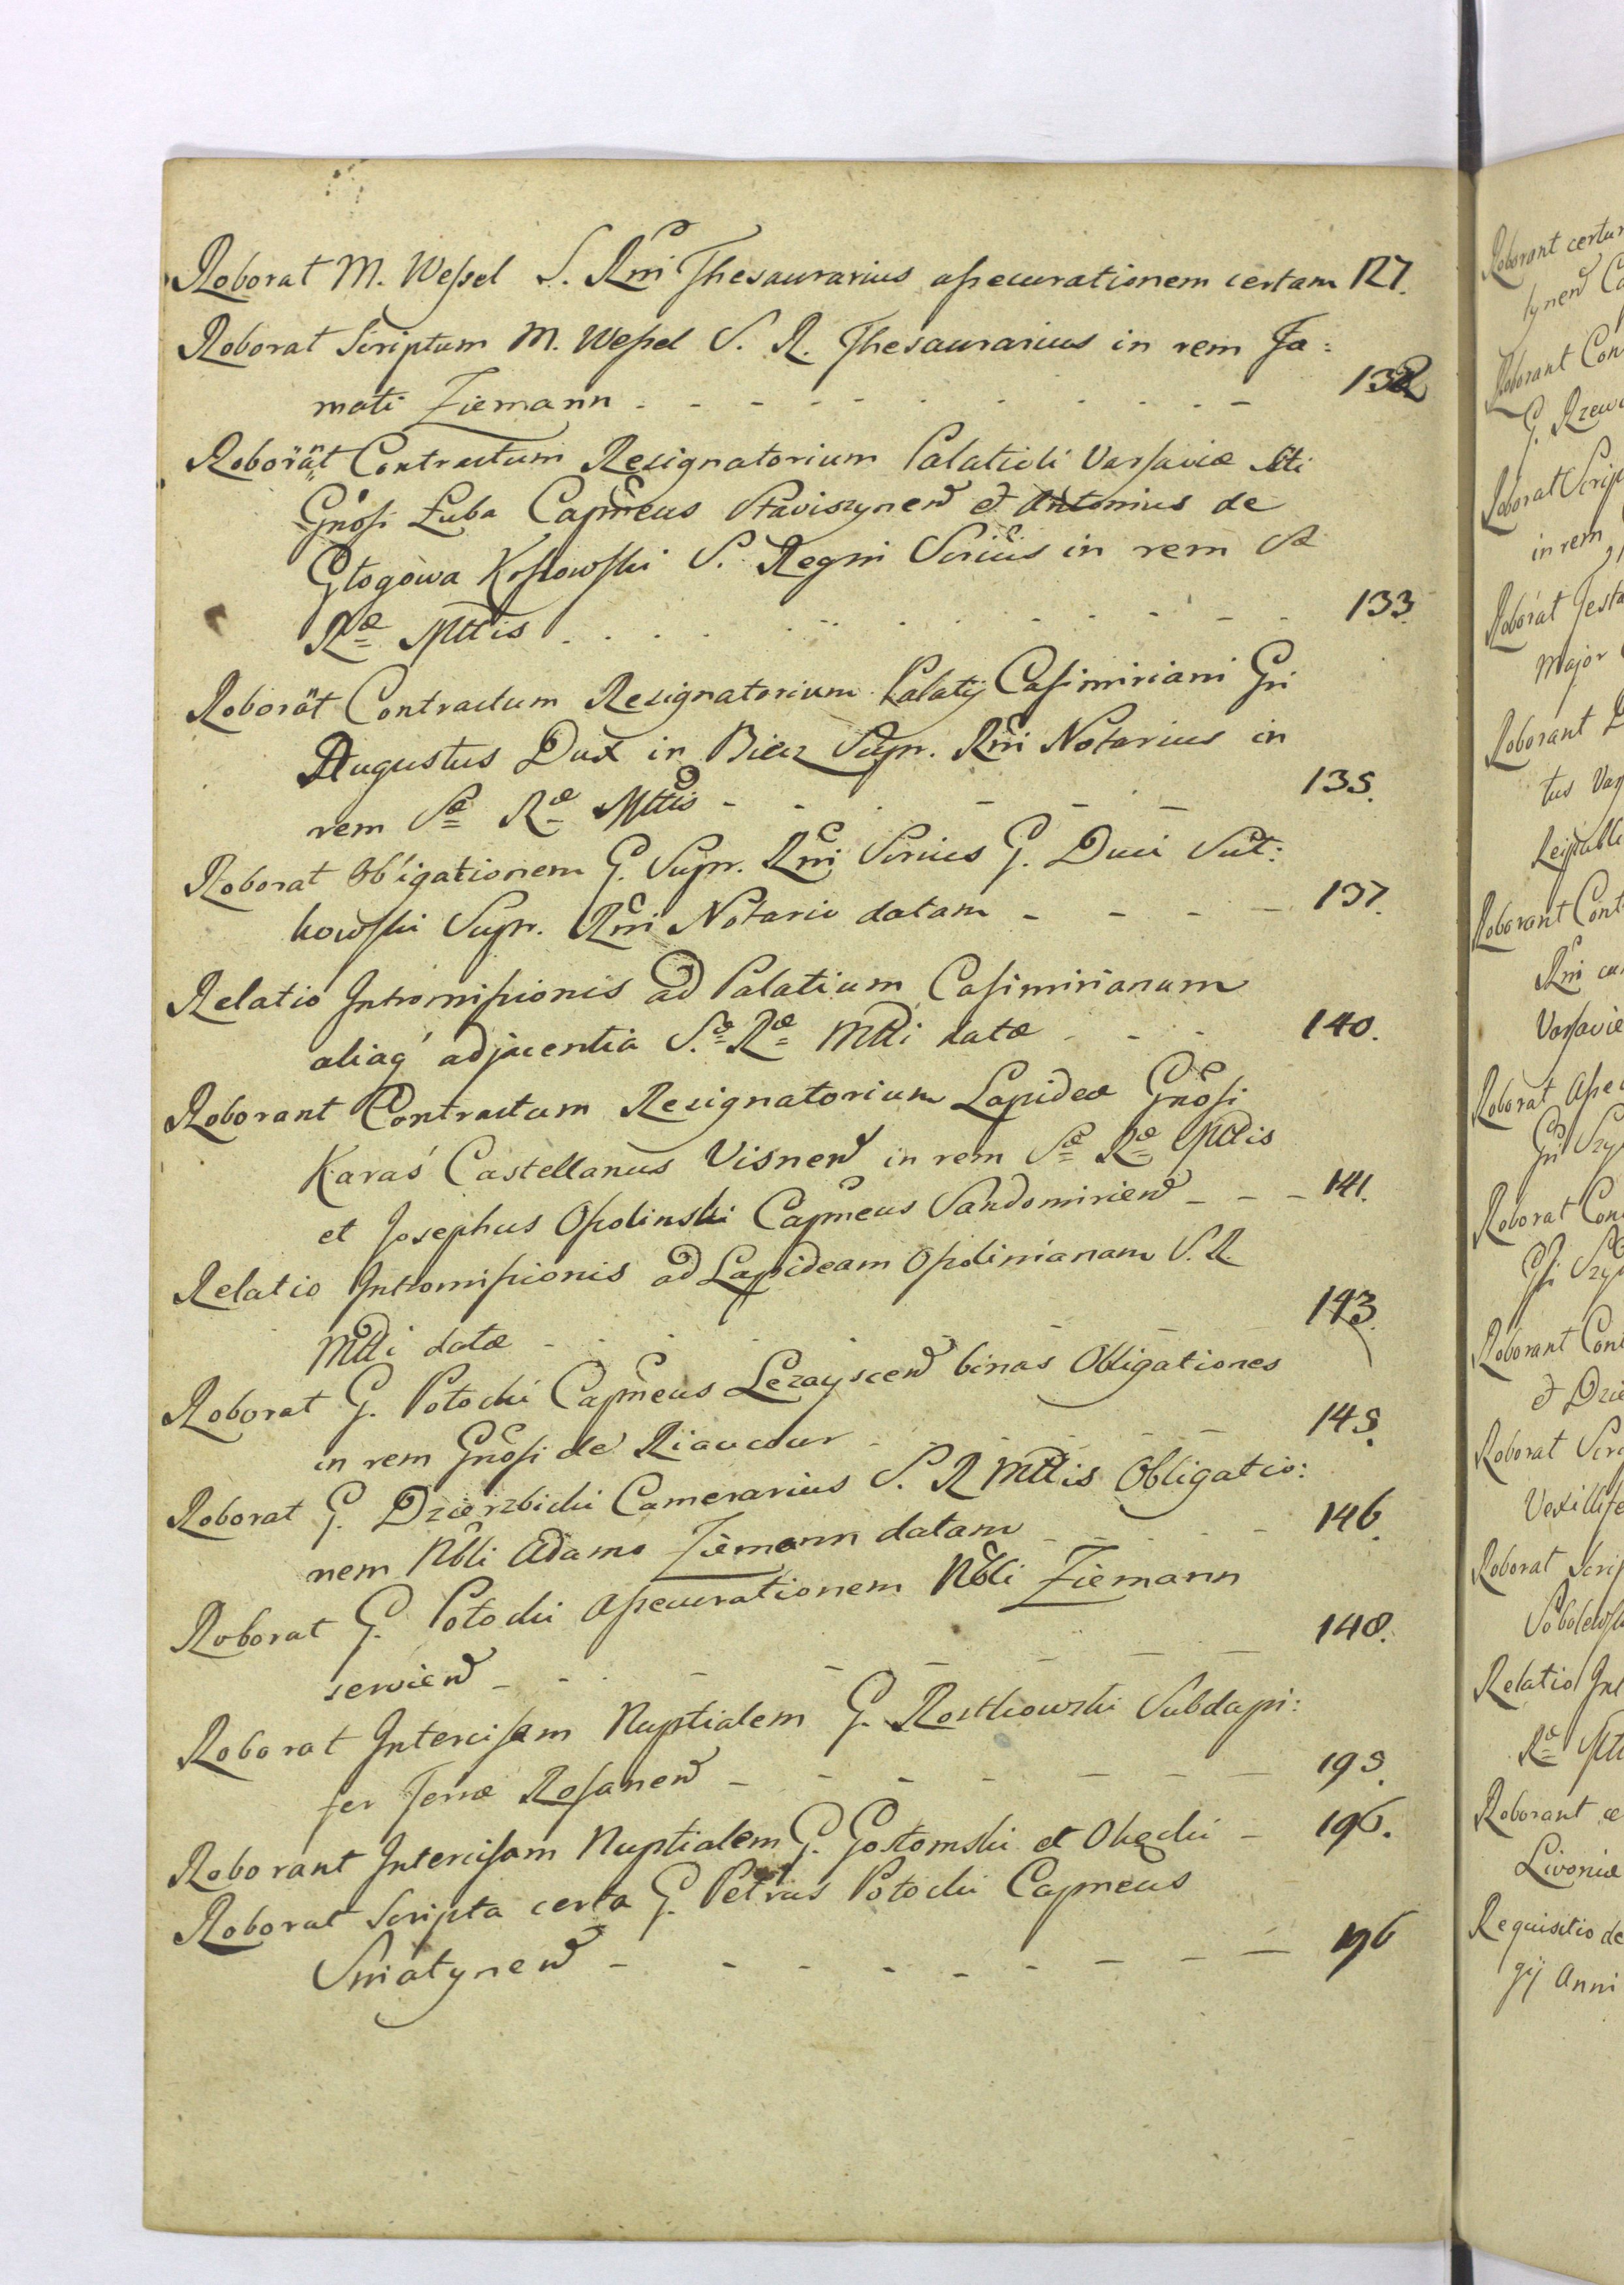 Roborat M. Wessel S. Rni Thesaurarius assecurationem certam 127.
Roborat Scriptum M. Wessel S. R. Thesaurarius in rem Fa:
mati Ziemann 132
Roborat Contractum Resignatorium Palatioli Varsaviæ Sti
Gnosi Łuba Capneus Staviszynen et Antonius de
Głogowa Kossowski S. Regni in rem Sæ
Ræ Mttis 133.
Roborat Contractum Resignatorium Palatij Casimiriani Gri
Augustus Dux in Bierz Supr. Rni Notarius in
rem Sæ Ræ Mttis 135.
Roborat Obligationem G. Supr. Rni G. Duci Sut:
kowski Supr. Rni Notario datam 137.
Relatio Intromissionis ad Palatium Casimirianum
aliaq' adjacentia S.æ Ræ Mtti datæ 140.
Roborant Contractum Resignatorium Lapideæ Gnosi
Karaś Castellanus Visnen in rem Sæ Ræ Mttis
et Josephus Opolinski Capneus Sandomirien 141.
Relatio Intromissionis ad Lapideam Opolinianam S. R
Mtti datæ 143.
Roborat G. Potocki Capneus Lezayscen binas Obligationes
in rem Gnosi de Riaucour 145.
Roborat G. Dzierzbicki Camerarius S. R Mttis Obligatio:
nem Nbli Adamo Ziemann datam 146.
Roborat G. Potocki Assecurationem Nbli Ziemann
servien 148.
Roborat Intercisam Nuptialem G. Rostkowski Subdapi:
fer Terræ Rosanen 195.
Roborant Intercisam Nuptialem G. Gostomski et Okęcki 196.
Roborat Scripta certa G. Petrus Potocki Capneus
Sniatynen 196
Roborant
Roborant
G.
Roborat
in rem
Roborat
Major
Roborant
tus
Roborant
Rni
Varsaviæ
Roborat
Roborat
Roborant
et
Roborat
Roborat
Relatio
Ræ
Roborant
Livoniæ
Requisitio de
gij Anni